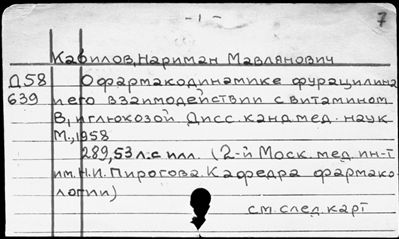 - 1 -
7
Кабилов, Нариман Мавлянович
Д58 О фармакодинамике фурацилина
639 и его взаимодействии с витамином
В₁ и глюкозой Дисс. канд. мед. наук
М., 1958
289, 53 л. с илл. (2-й Моск. мед. ин-т
им. Н.И. Пирогова. Кафедра фармако-
логии)
см. след. карт